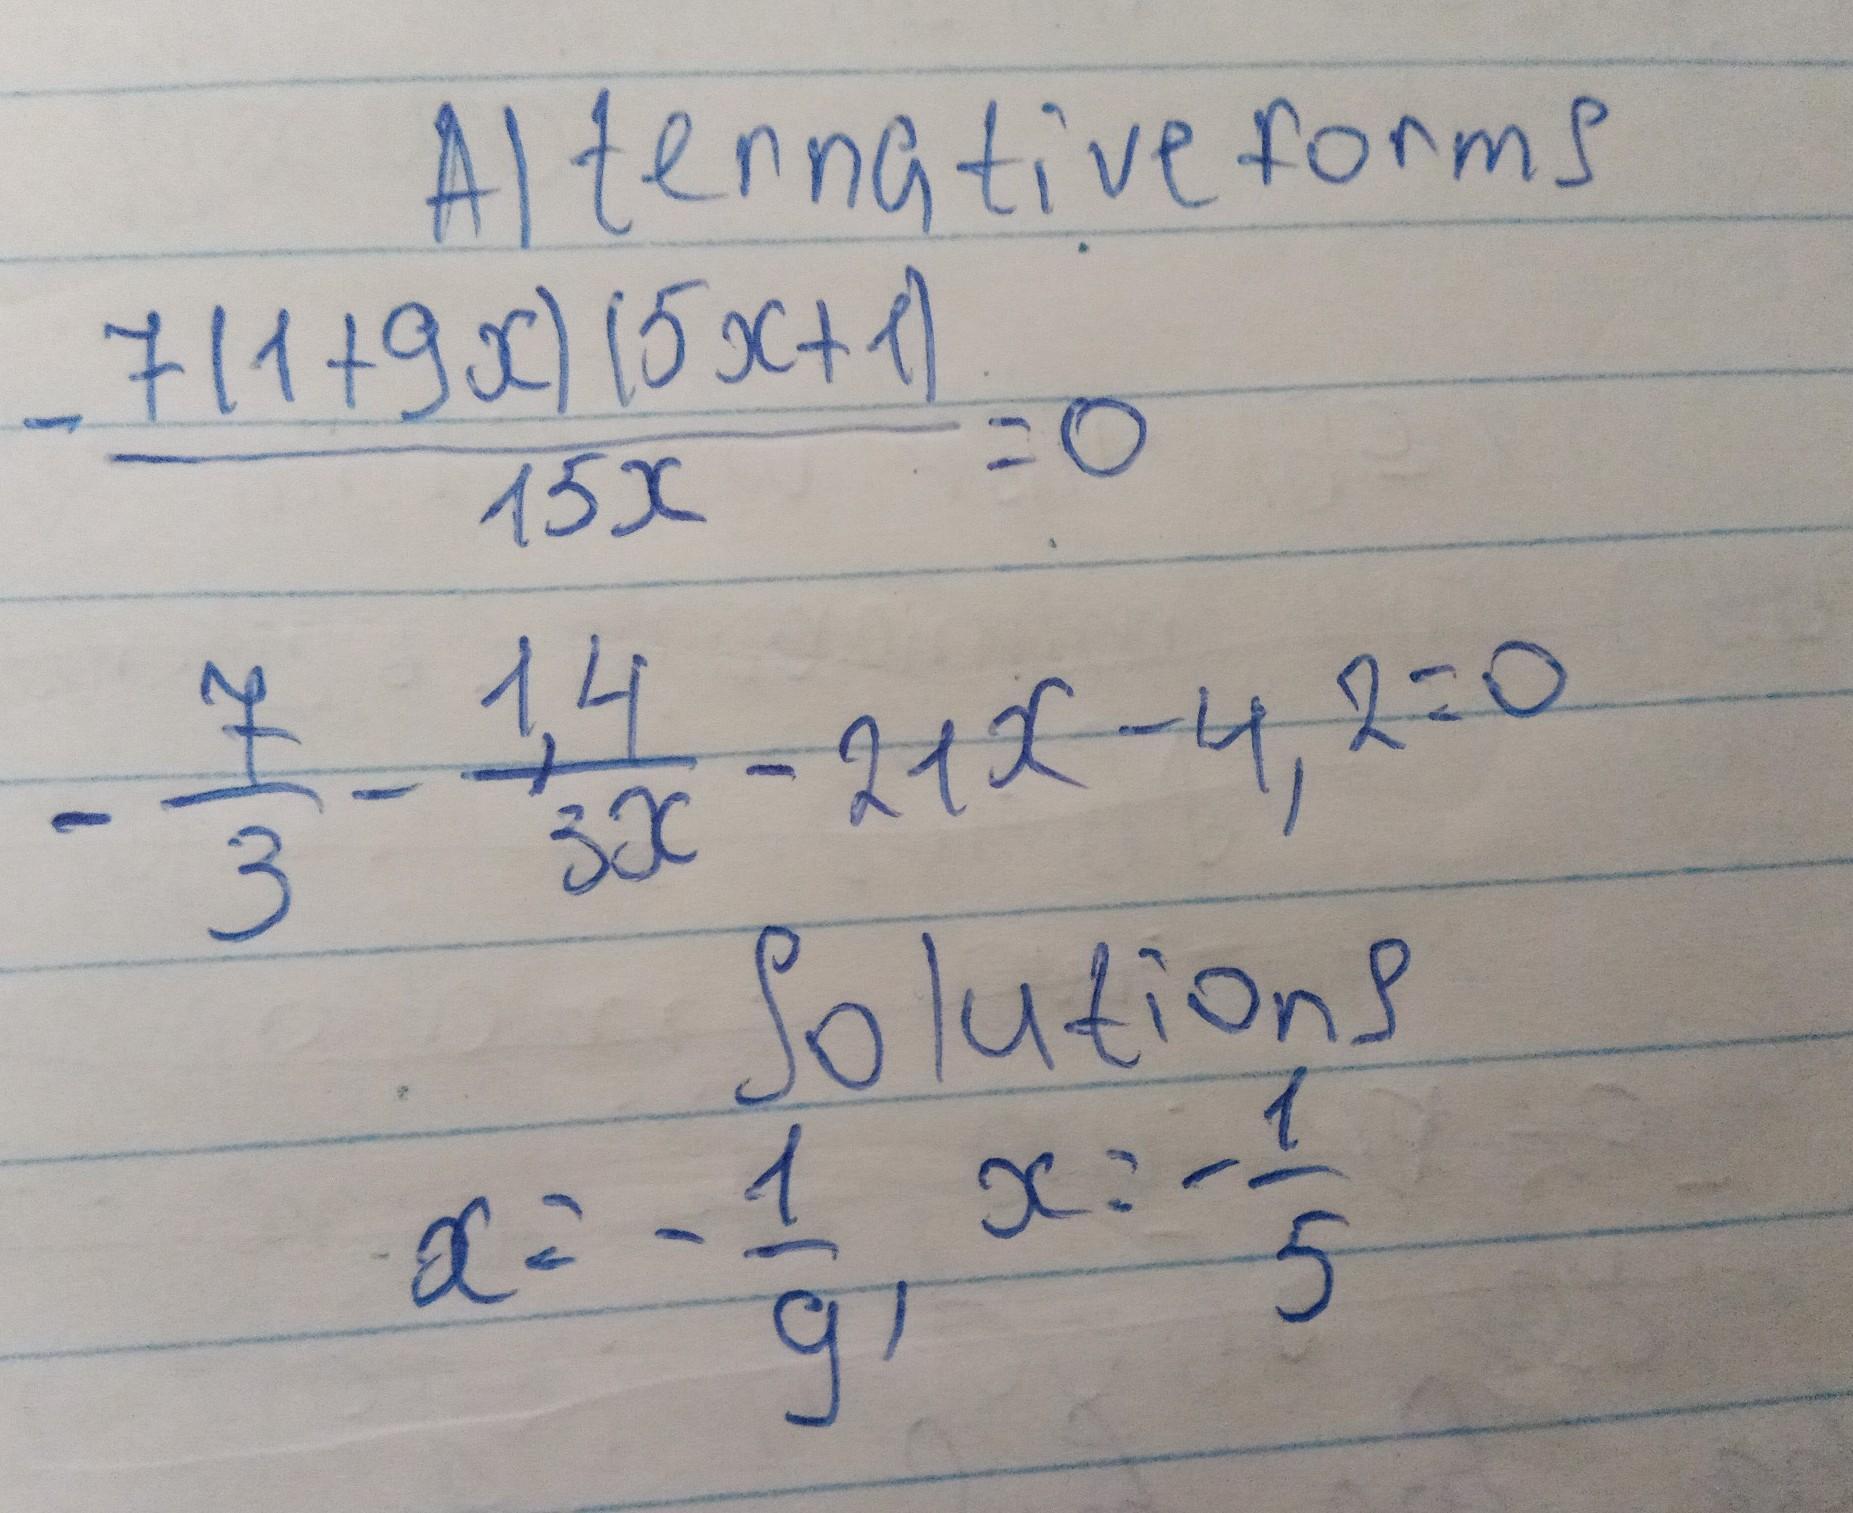 Alternative forms
- 7(1+9x)(5x+1)/15x = 0
- 7/3 - 1,4/3x - 21x - 4,2 = 0
Solutions
x = - 1/9, x = - 1/5